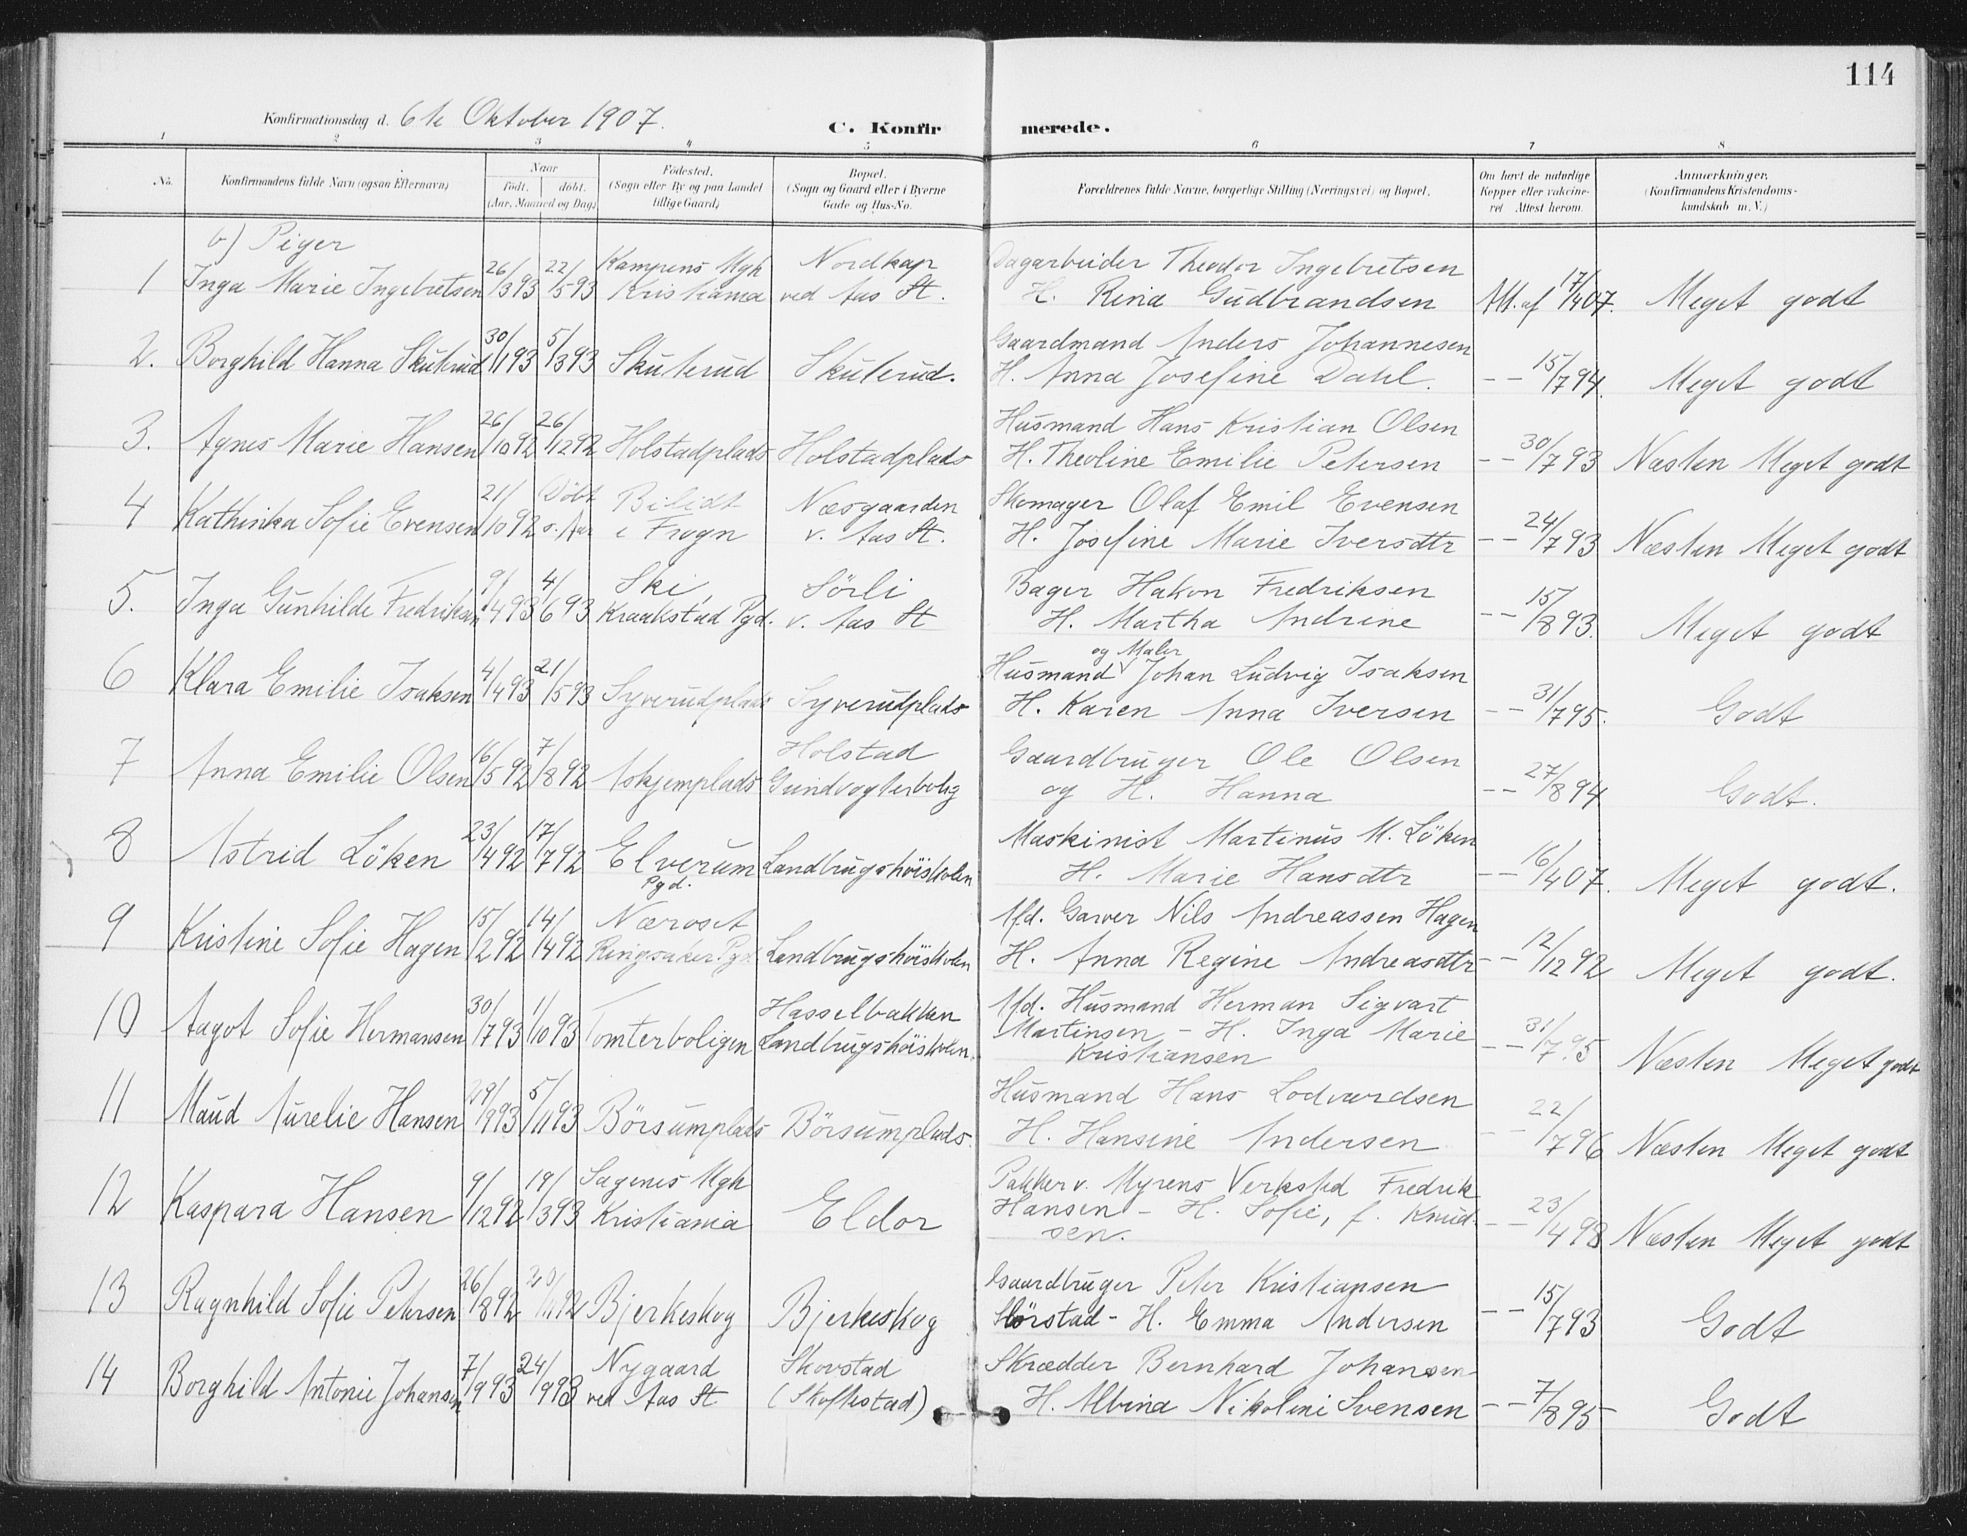 114
Konfirmationsdag d. 6te Oktober 1907.
C. Konfirmerede.
1 2 3 4 5 6 7 8
No. Konfirmandens fulde Navn (ogsaa Efternavn) Naar født. døbt. (Aar, Maaned og Dag) Fødested. (Sogn eller By og paa Landet tillige Gaard) Bopæl. (Sogn og Gaard eller i Byerne Gade og Hus-No. Forældrenes fulde Navne, borgerlige Stilling (Næringsvei) og Bopæl. Om havt de naturlige Kopper eller vakcineret. Attest herom. Anmærkninger. (Konfirmandens Kristendomskundskab m. V.)
b) Piger
1 Inga Marie Ingebretsen 26/3 93 22/5 93 Kampens Mgh Kristiania Nordkap ved Aas St. Dagarbeider Theodor Ingebretsen
H. Rina Gudbrandsen Att. af 17/4 07. Meget godt
2. Borghild Hanna Skuterud 30/1 93 5/3 93 Skuterud Skuterud. Gaardmand Anders Johannesen
H. Anna Josefine Dahl. -- 15/7 94. Meget godt
3. Agnes Marie Hansen 26/10 92 26/12 92 Holstadplads Holstadplads Husmand Hans Kristian Olsen
H. Theoline Emilie Petersen -- 30/7 93 Næsten Meget godt
4 Kathinka Sofie Evensen 21/10 92 Døbt s. Aar Bilidt i Frogn Næsgaarden v. Aas St. Skomager Olaf Emil Evensen
H. Josefine Marie Iversdtr -- 24/7 93 Næsten Meget godt
5. Inga Gunhilde Fredriksen 9/4 93 4/6 93 Ski Kraakstad Pgd. Sörli v. Aas St Bager Hakon Fredriksen
H. Martha Andrine -- 15/8 93. Meget godt
6 Klara Emilie Isaksen 4/4 93 21/5 93 Syverudplads Syverudplads Husmand og Maler Johan Ludvig Isaksen
H. Karen Anna Iversen -- 31/7 95. Godt
7 Anna Emilie Olsen 16/5 92 7/8 92 Askjemplads Holstad Grindvogterbolig Gaardbruger Ole Olsen
og H. Hanna -- 27/8 94 Godt.
8 Astrid Löken 23/4 92 17/7 92 Elverum Pgd. Landbrugshöiskolen Maskinist Martinus M. Löken
H. Marie Hansdtr -- 16/4 07. Meget godt.
9 Kristine Sofie Hagen 15/2 92 14/4 92 Næroset Ringsaker Pgd. Landbrugshöiskolen Afd. Garver Nils Andreassen Hagen
H. Anna Regine Andreasdtr -- 12/12 92 Meget godt.
10 Aagot Sofie Hermansen 30/7 93 1/10 93 Tomterboligen Hasselbakken Landbrugshöiskolen. Afd. Husmand Herman Sigvart
Martinsen - H. Inga Marie
Kristiansen -- 31/7 95 Næsten Meget godt
11 Maud Aurelie Hansen 29/9 93 5/11 93 Börsumplads Börsumplads. Husmand Hans Lodvardsen
H. Hansine Andersen -- 22/7 96 Næsten Meget godt
12 Kaspara Hansen 9/12 92 19/3 93 Sagenes Mgh Kristiania Eldor Pakker v. Myrens Verksted Fredrik
Hansen - H. Sofie, f. Knudsen. -- 23/4 98 Næsten Meget godt
13 Ragnhild Sofie Petersen 26/8 92 20/11 92 Bjerkeskog Bjerkeskog Gaardbruger Peter Kristiansen
Hörstad - H. Emma Andersen -- 15/7 93 Godt
14 Borghild Antonie Johansen 7/9 93 24/9 93 Nygaard ved Aas St Skovstad (Skoftestad) Skrædder Bernhard Johansen
H. Albina Nikoline Svensen -- 7/8 95 - Godt